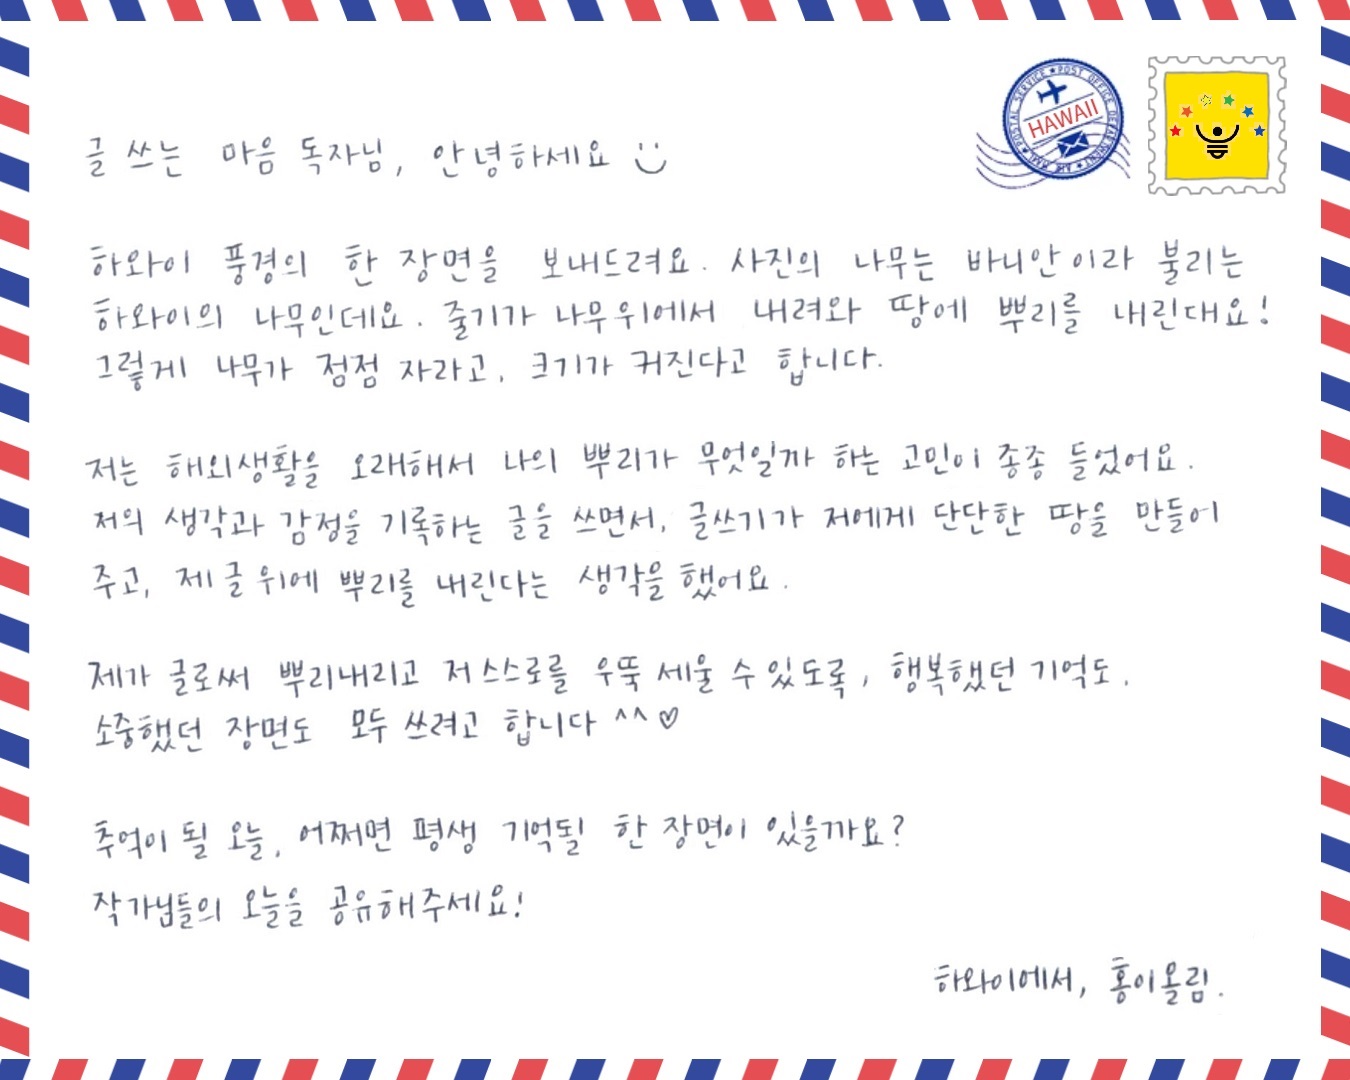 POSTAL SERVICE ★ POST OFFICE DEPARTMENT AIR MAIL
HAWAII
글 쓰는 마음 독자님, 안녕하세요
하와이 풍경의 한 장면을 보내드려요. 사진의 나무는 바니안이라 불리는
하와이의 나무인데요. 줄기가 나무위에서 내려와 땅에 뿌리를 내린대요!
그렇게 나무가 점점 자라고, 크기가 커진다고 합니다.
저는 해외생활을 오래해서 나의 뿌리가 무엇일까 하는 고민이 종종 들었어요.
저의 생각과 감정을 기록하는 글을 쓰면서, 글쓰기가 저에게 단단한 땅을 만들어
주고, 제 글 위에 뿌리를 내린다는 생각을 했어요.
제가 글로써 뿌리내리고 저 스스로를 우뚝 세울 수 있도록, 행복했던 기억도.
소중했던 장면도 모두 쓰려고 합니다 ^^ ♡
추억이 될 오늘, 어쩌면 평생 기억될 한 장면이 있을까요?
작가님들의 오늘을 공유해주세요!
하와이에서, 홍이올림.